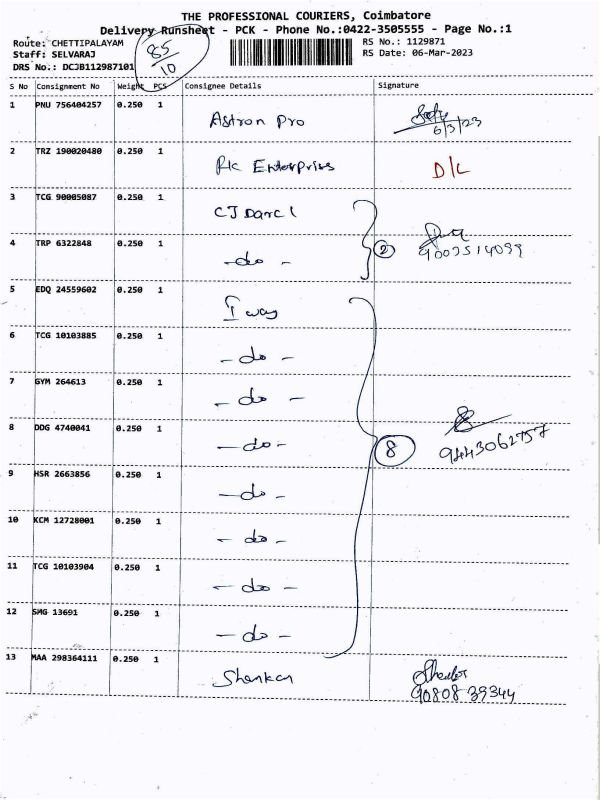 THE PROFESSIONAL COURIERS, Coimbatore
Delivery Runsheet - PCK - Phone No.:0422-3505555 - Page No.:1
Route: CHETTIPALAYAM
Staff: SELVARAJ
DRS No.: DCJB112987101
85/10
RS No.: 1129871
RS Date: 06-Mar-2023
S No Consignment No Weight PCS Consignee Details Signature
1 PNU 756404257 0.250 1 Astron Pro 6/3/23
2 TRZ 190020480 0.250 1 RK Enterprises D/L
3 TCG 90005087 0.250 1 CJ Darcl
4 TRP 6322848 0.250 1 -do- 2
5 EDQ 24559602 0.250 1 I way
6 TCG 10103885 0.250 1 -do-
7 GYM 264613 0.250 1 -do-
8 DDG 4740041 0.250 1 -do- 8 9443062757
9 HSR 2663856 0.250 1 -do-
10 KCM 12728001 0.250 1 -do-
11 TCG 10103904 0.250 1 -do-
12 SMG 13691 0.250 1 -do-
13 MAA 298364111 0.250 1 Shankar
90808 39344